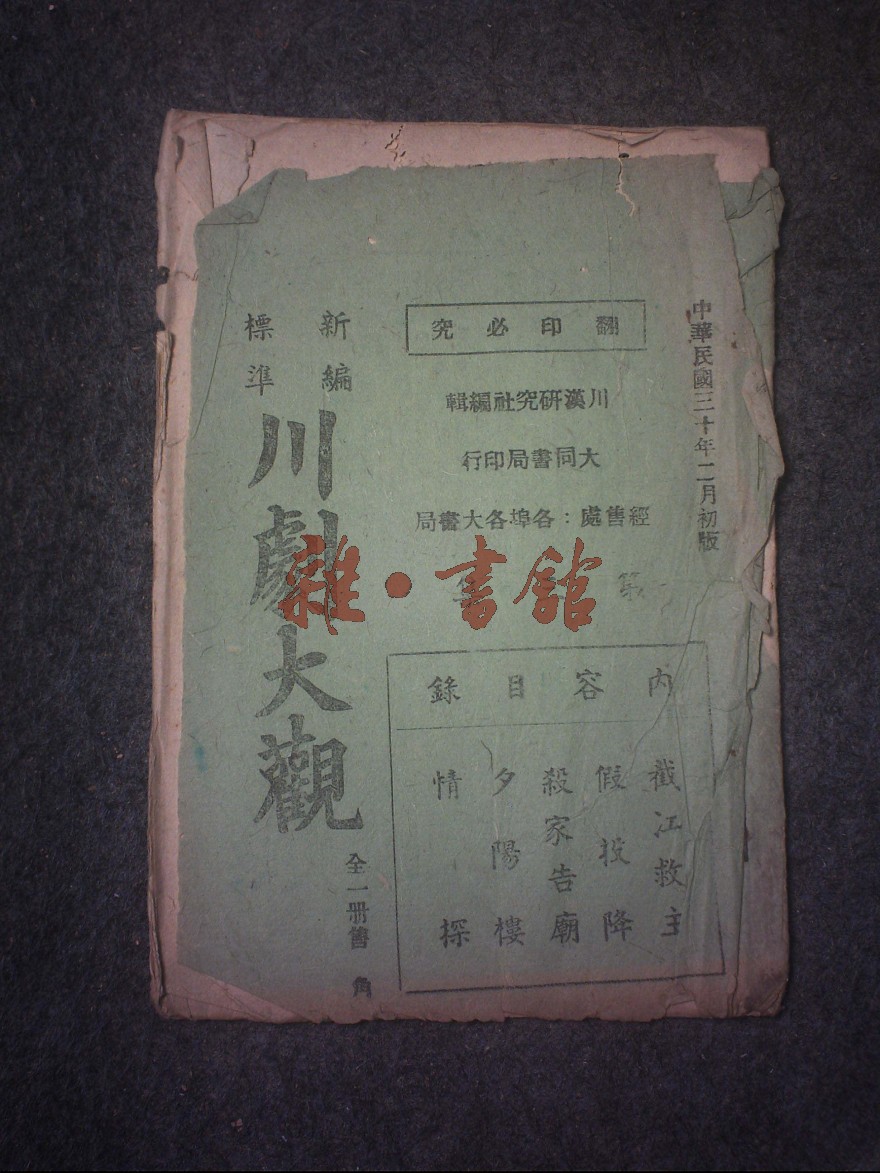 中華民國三十年二月初版
翻印必究
川漢研究社編輯
大同書局印行
經售處：各埠各大書局
第 集
內容目錄
截江救主
假投降
殺家告廟
夕陽樓
情探
新編
標準
川劇大觀
全一册售 角
雜·書館